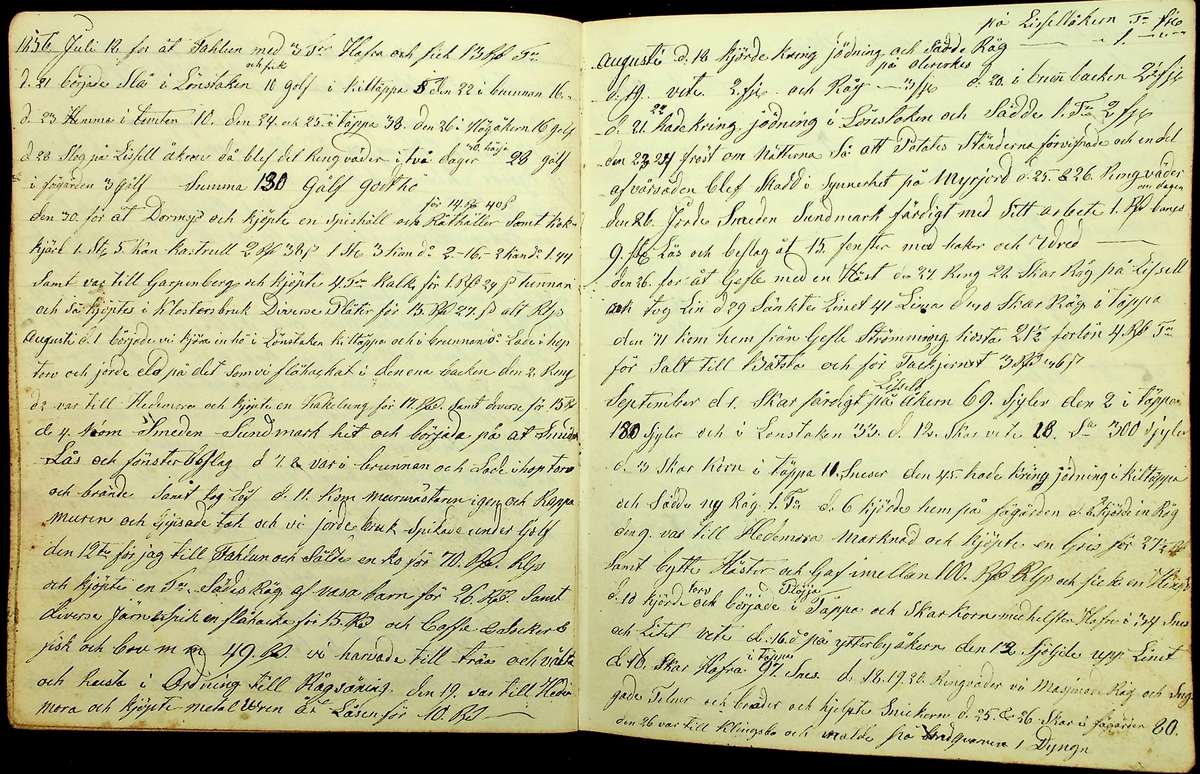 1856 Juli 12 for åt Fahlun med 3 Tr Hafra och fick 13 Rd Tn
och fik
d. 21 började Slå i Lönstaken 10 golf i Kiltäppa 8 den 22 i brunnan 16.
d. 23 Hemma i tomten 10. den 24 och 25. i täppa 38. den 26 i Högåkern 16 golf
d 28 Slog på Lissell åkern då blef det Rengväder i två dager 30. hässja 28 gålf
i fägården 3 gålf Summa 130 Gålf godt hö
för 14 Rd 40
den 30. for åt Dormsjö och kjöpte en spishäll och Råthäller Samt kok
kjärl 1. St 5 kan kastrull 2 Rd 38 1 St 3 kan do 2-16-2 kan do 1.44
Samt var till Garpenberg och kjöpte 4 Tr Kalk för 1 Rd 24 s tunnan
och Så kjöptes i Klostersbruk Diverse Plåter för 15 Rd 27. alt Rgs
Augusti d. 1 började vi kjöra in hö i Lönstaken kiltäppa och i brunnan do Lade i hop
torv och jorde Eld på det som vi flåhackat i den ena backen den 2. Reng
d. 3 var till Hedemora och kjöpte en Kakelung för 17 Rd. Samt diverse för 15 Rd
d. 4. kom Smeden Sundmark hit och började på at Smida
Lås och fönsterbeslag d 7. 8 var i brunnan och Lade i hop torv
och brände Samt tog Löf d. 11. kom murmästaren igen och Rappa
muren och Gjipsade tak och vi jorde bruk spikade under Golf
den 12te for jag till Fahlun och Sålde en ko för 70. Rd. Rgs
och kjöpte en Tn Sädes Råg af vasa barn för 26 Rd. Samt
diverse järn Spik en flåhacka för 15 Rd och Caffe & Socker &
fisk och bov m m 49. Rd. vi harvade till träa och välte
och hasta i Ordning till Rågsåning. den 19. var till Hede
mora och kjöpte metal Uren åt Låsen för 10. Rd
på Lissellåkern Tn fjo
Augusti d. 18 kjörde kring jödning och Sådde Råg 1.
på olersskes
d. 19. vete 2 fjo och Råg 3 fjo d. 20. i brunn backen 2½ fjo
d. 21. 22 hade kring jödning i Lönstaken och Sådde 1. Tn 2 fjo
den 23 24 fråst om Nätterna Så att Potates Ständerna förvisnade och en del
af vårsäden blef Skadd i Synnerhet på Myrjord d. 25. & 26. Rengväder
om dagen
den 26. Jorde Smeden Sundmark färdigt med Sitt arbete 1. Rd
9. st Lås och beslag åt 15 fenster med haker och Wred
den 26. for åt Gefle med en Häst den 27 Reng 28. Skar Råg på Lissell
och tog Lin d 29 Sänkte Linet 41 Linna d 30 Skar Råg i täppa
den 31 kom hem från Gefle Strömming kosta 21½ forlön 4. Rd Tn
för Salt till Bätsta och för Tackjernet 3 Rd
Lissell
September d 1. Skar färdigt på åkern 69. Syler den 2 i täppa
180 Syler och i Lönstaken 33. d. 12. Skar vete 18. Sa 300 Syler
d. 3 Skar Korn i täppa 11. Sneser den 4.5. hade kring jödning i kiltäppa
och Sådde ny Råg 1. Tn d. 6 kjörde hem på fägården d. 8. kjörde in Råg
den 9. var till Hedemora marknad och kjöpte en Gris för 27½
Samt bytte Häster och Gaf imellan 100. Rd Rgs och fick en
torv Plöjja
d. 10 kjörde och började i Täppa och Skar korn med helften Hafra i 34 Snes
och Litet vete d. 16. do på ytterbyåkern den 12 Sjöljde upp Linet
i täppa
d. 16. Skar Hafra 97. Snes. d. 18.19.20. Rengväder vi Masjinade Råg och Såg
gade Tilner och bräder och hjelpte Snickern d. 25. & 26 Skar i fägården 80.
den 26 var till Klingsbo och malde på Lindqvarnen 1 Dyngn